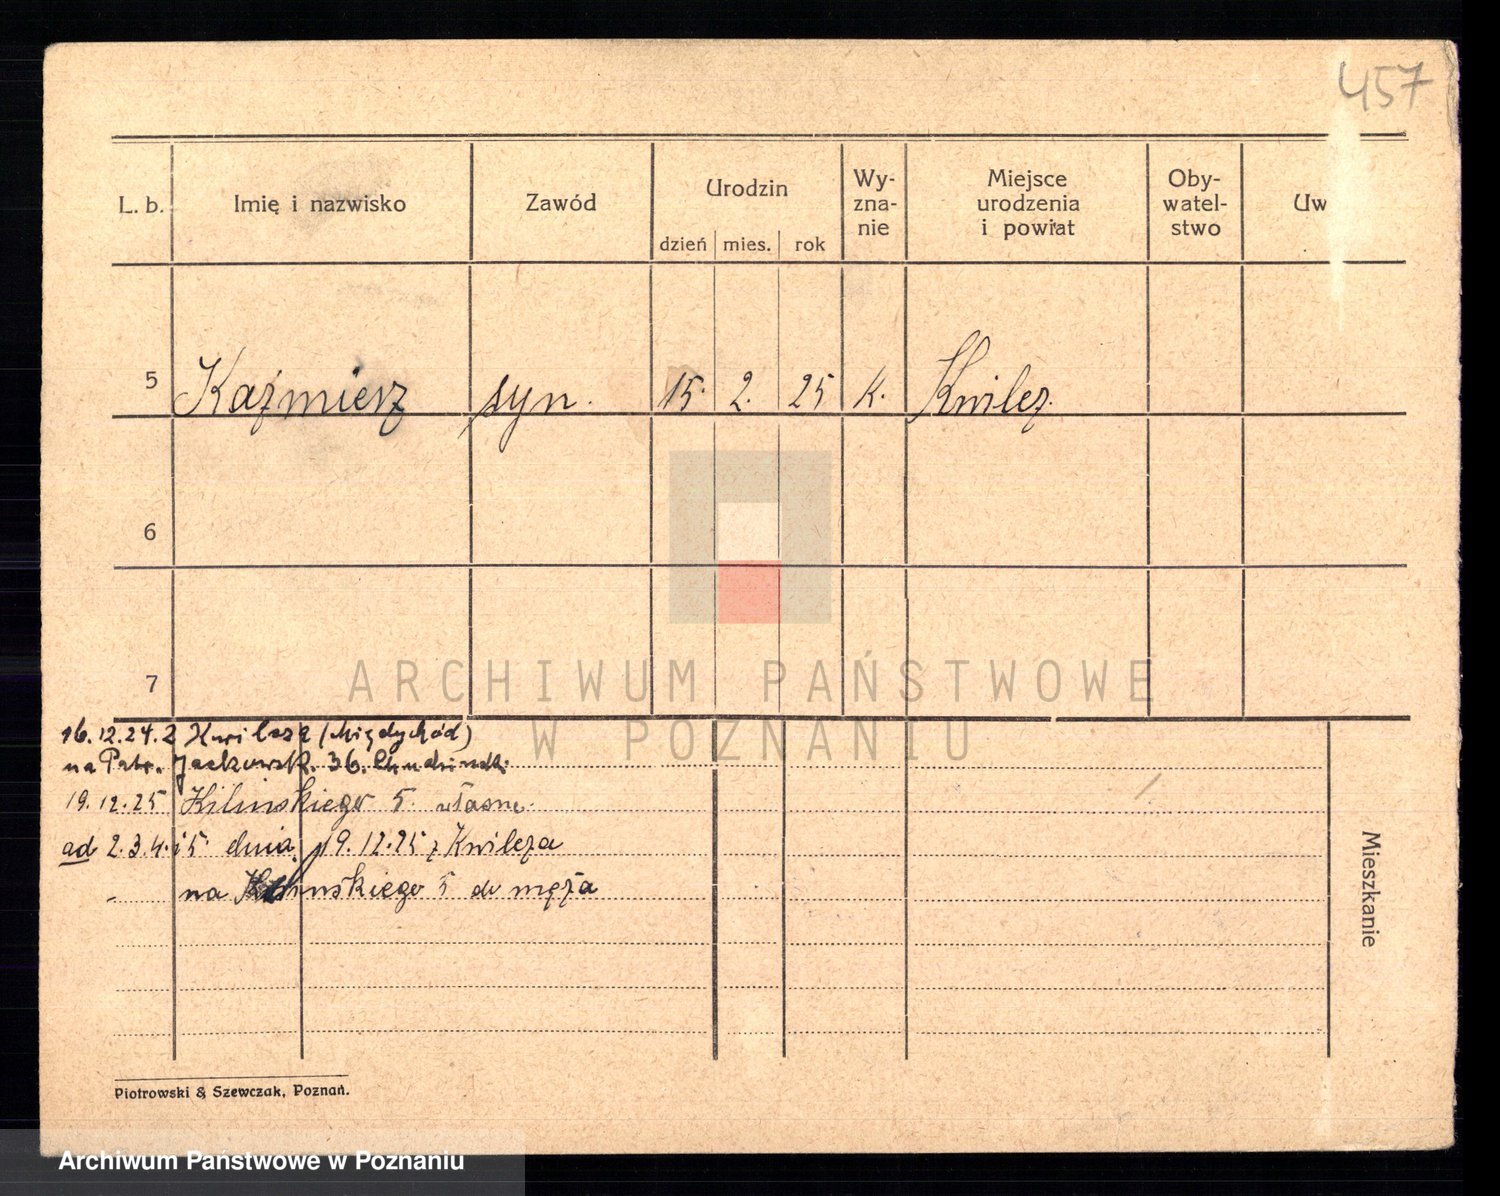 457
L. b. Imię i nazwisko Zawód Urodzin dzień mies. rok Wy- zna- nie Miejsce urodzenia i powiat Oby- watel- stwo Uw
5 Kaźmierz syn. 15. 2. 25 K. Kwilcz.
6
7
ARCHIWUM PAŃSTWOWE
W POZNANIU
16.12.24. z Kwilcza (Międychód)
na Patr. Jackowsk. 36.
19.12.25 Kilinskiego 5 własne.
ad 2.3.4. i 5 dnia 19.12.25 z Kwilcza
na Kilinskiego 5 do męża
Mieszkanie
Piotrowski & Szewczak, Poznań.
Archiwum Państwowe w Poznaniu